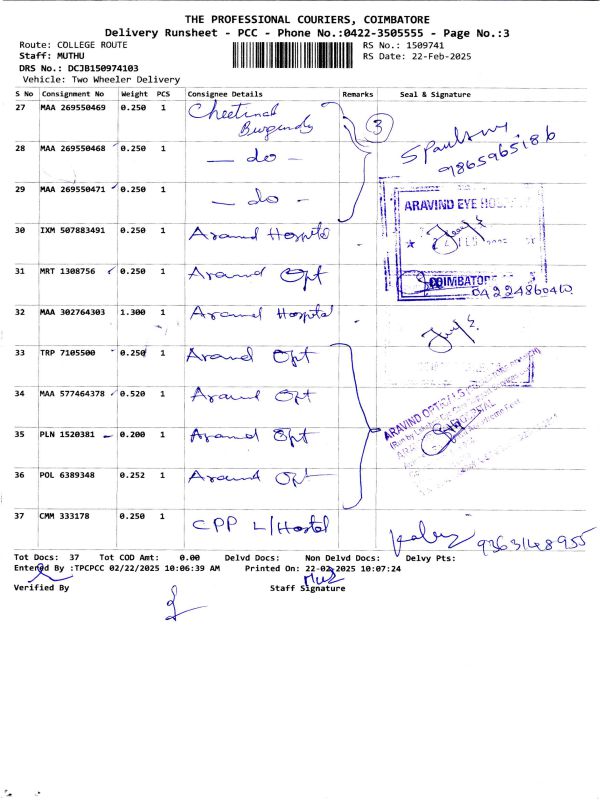 THE PROFESSIONAL COURIERS, COIMBATORE
Delivery Runsheet - PCC - Phone No.:0422-3505555 - Page No.:3
Route: COLLEGE ROUTE RS No.: 1509741
Staff: MUTHU RS Date: 22-Feb-2025
DRS No.: DCJB150974103
Vehicle: Two Wheeler Delivery
S No Consignment No Weight PCS Consignee Details Remarks Seal & Signature
27 MAA 269550469 0.250 1
3
28 MAA 269550468 0.250 1 — do —
9865965186
29 MAA 269550471 0.250 1 — do —
ARAVIND EYE
30 IXM 507883491 0.250 1 Aravind Hospital
31 MRT 1308756 0.250 1 Aravind Opt
COIMBATORE
04224860410
32 MAA 302764303 1.300 1 Aravind Hospital
33 TRP 7105500 0.250 1 Aravind Opt
34 MAA 577464378 0.520 1 Aravind Opt
ARAVIND OPTICALS
35 PLN 1520381 0.200 1 Aravind Opt
36 POL 6389348 0.252 1 Aravind Opt
37 CMM 333178 0.250 1 CPP L/Hostel
9363148955
Tot Docs: 37 Tot COD Amt: 0.00 Delvd Docs: Non Delvd Docs: Delvy Pts:
Entered By :TPCPCC 02/22/2025 10:06:39 AM Printed On: 22-02-2025 10:07:24
Verified By Staff Signature